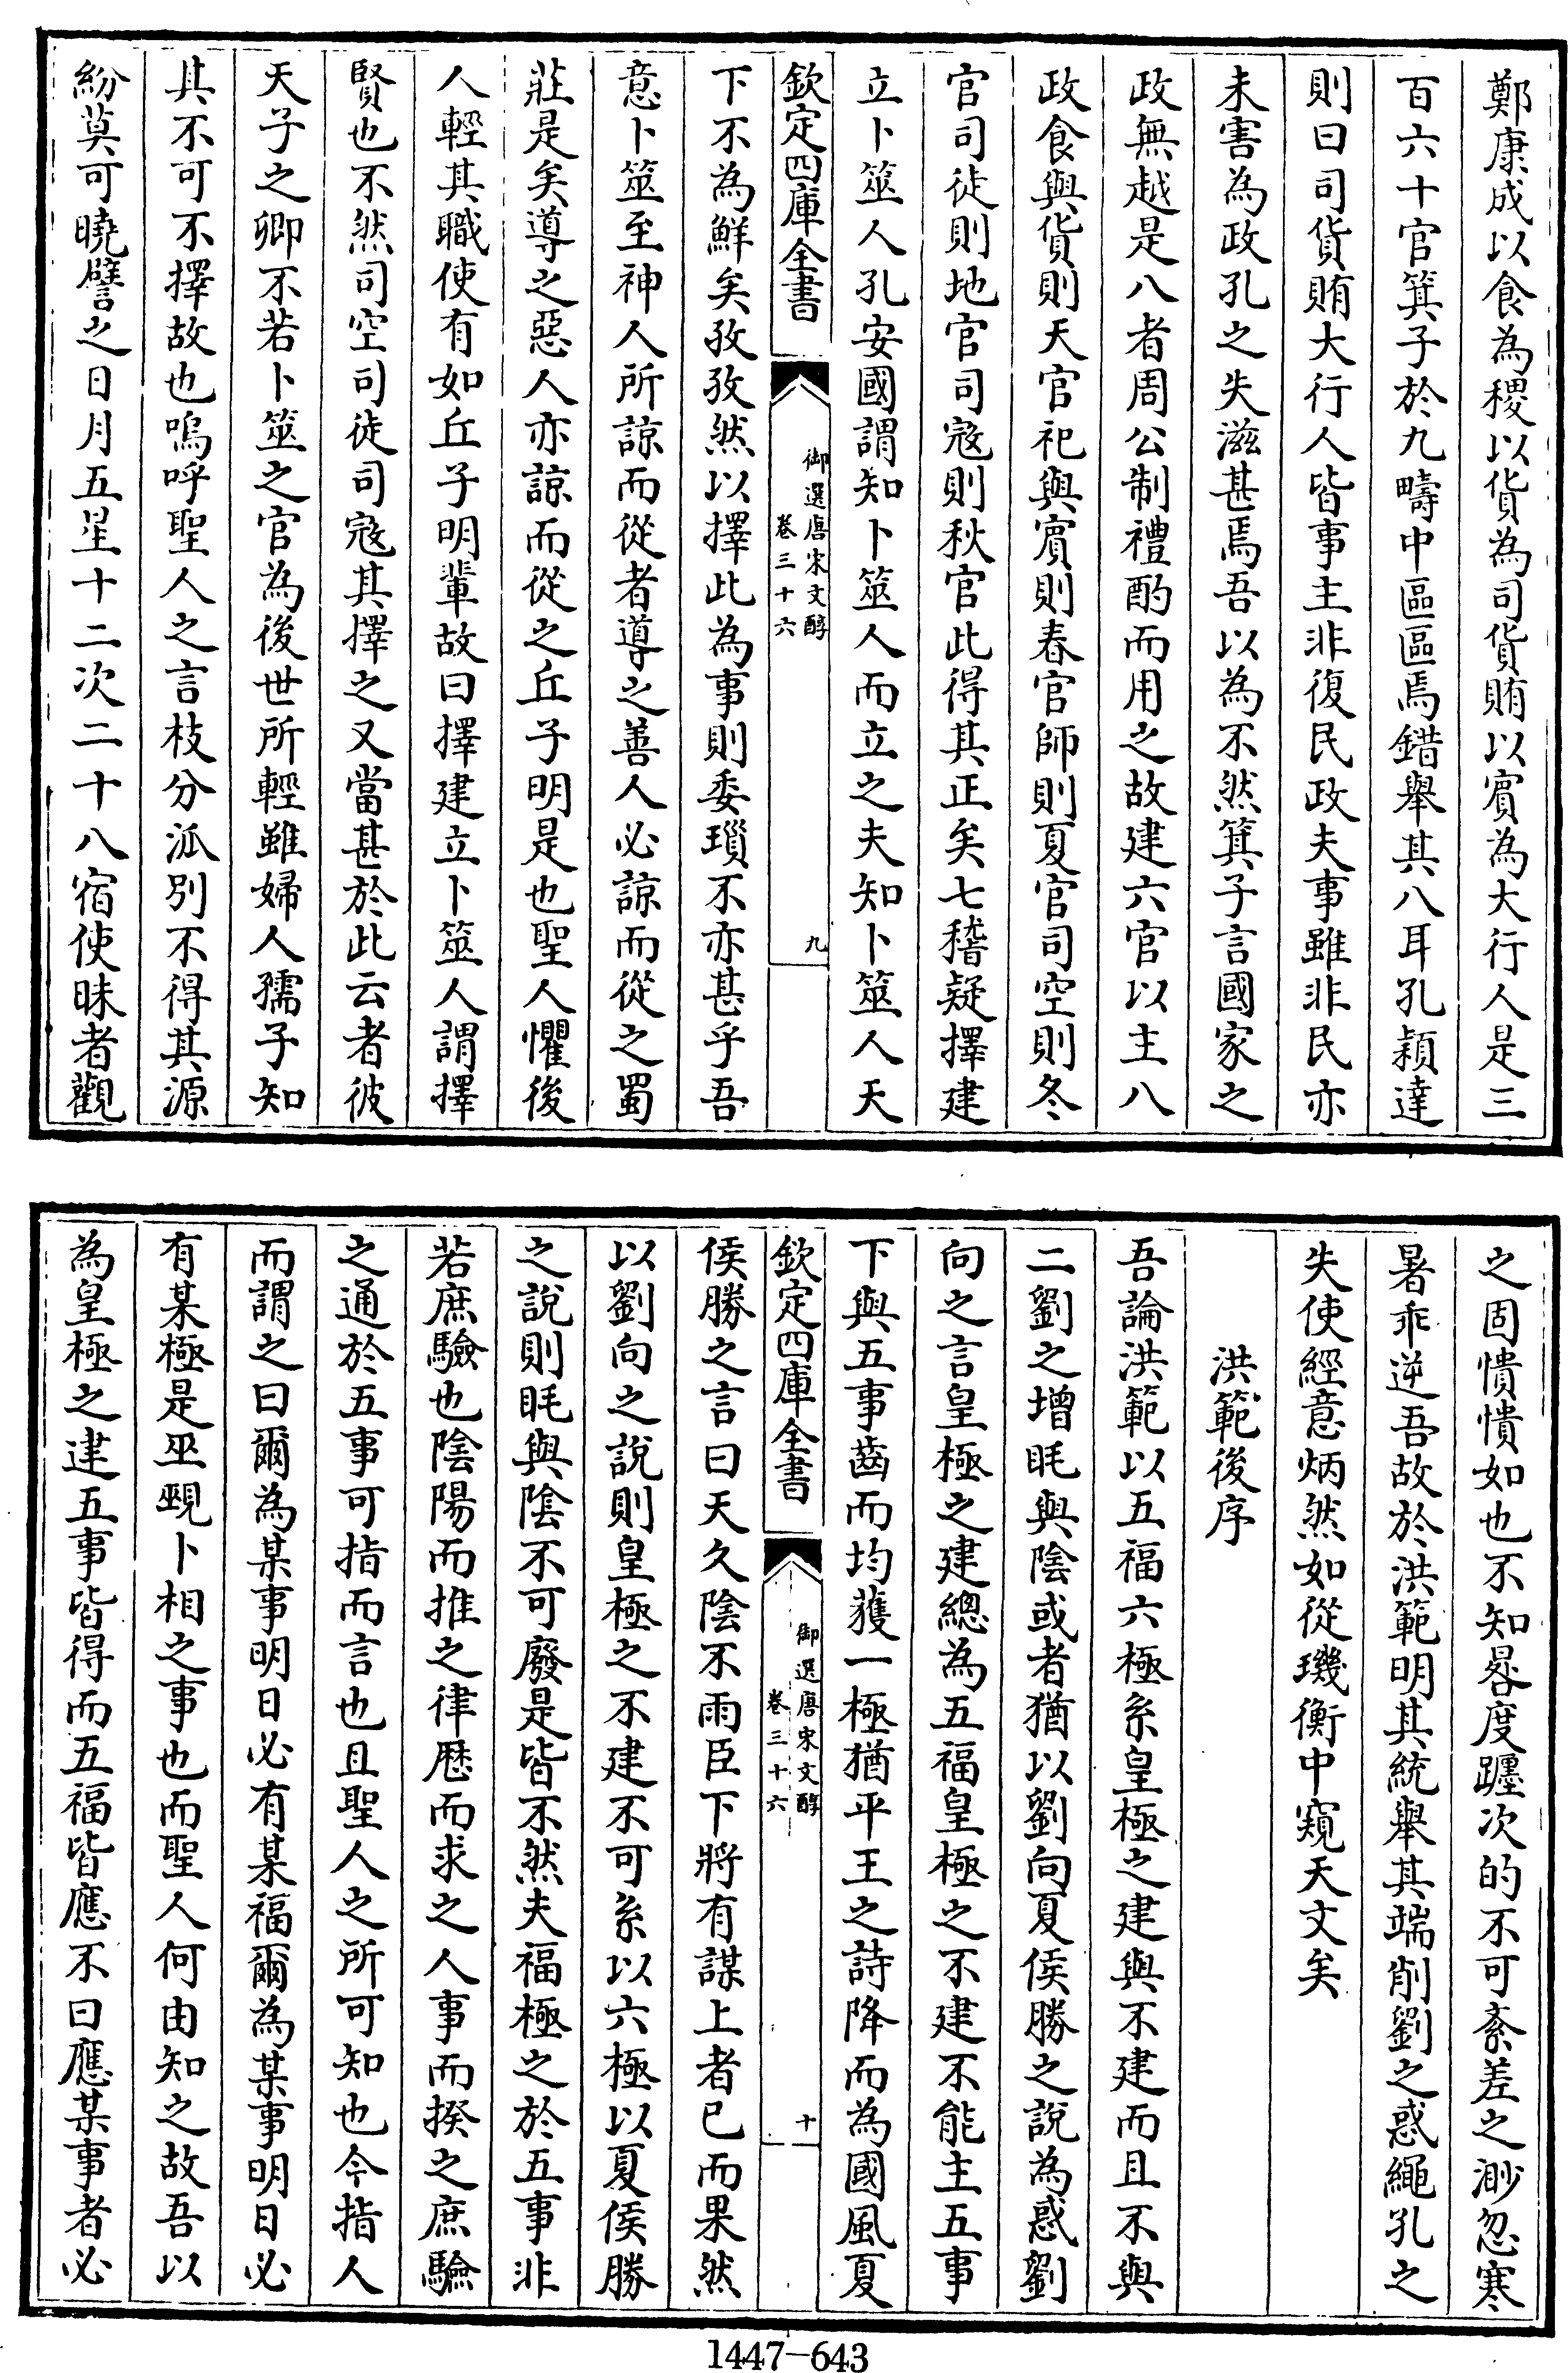 鄭康成以食為稷以貨為司貨賄以賔為大行人是三
百六十官箕子於九疇中區區焉錯舉其八耳孔頴達
則曰司貨賄大行人皆事主非復民政夫事雖非民亦
未害為政孔之失滋甚焉吾以為不然箕子言國家之
政無越是八者周公制禮酌而用之故建六官以主八
政食與貨則天官祀與賔則春官師則夏官司空則冬
官司徒則地官司寇則秋官此得其正矣七稽疑擇建
立卜筮人孔安國謂知卜筮人而立之夫知卜筮人天
欽定四庫全書
御選唐宋文醇
卷三十六
九
下不為鮮矣孜孜然以擇此為事則委瑣不亦甚乎吾
意卜筮至神人所諒而從者導之善人必諒而從之蜀
莊是矣導之惡人亦諒而從之丘子明是也聖人懼後
人輕其職使有如丘子明輩故曰擇建立卜筮人謂擇
賢也不然司空司徒司寇其擇之又當甚於此云者彼
天子之卿不若卜筮之官為後世所輕雖婦人孺子知
其不可不擇故也嗚呼聖人之言枝分泒別不得其源
紛莫可曉譬之日月五星十二次二十八宿使昧者觀
之固憒憒如也不知晷度躔次的不可紊差之渺忽寒
暑乖逆吾故於洪範明其統舉其端削劉之惑繩孔之
失使經意炳然如從璣衡中窺天文矣
洪範後序
吾論洪範以五福六極系皇極之建與不建而且不與
二劉之增眊與陰或者猶以劉向夏侯勝之說為惑劉
向之言皇極之建總為五福皇極之不建不能主五事
下與五事齒而均蒦一極猶平王之詩降而為國風夏
欽定四庫全書
御選唐宋文醇
卷三十六
十
侯勝之言曰天久陰不雨臣下將有謀上者已而果然
以劉向之說則皇極之不建不可系以六極以夏侯勝
之說則眊與陰不可廢是皆不然夫福極之於五事非
若庶驗也陰陽而推之律厯而求之人事而揆之庶驗
之通於五事可指而言也且聖人之所可知也今指人
而謂之曰爾為某事明日必有某福爾為某事明日必
有某極是巫覡卜相之事也而聖人何由知之故吾以
為皇極之建五事皆得而五福皆應不曰應某事者必
1447-643